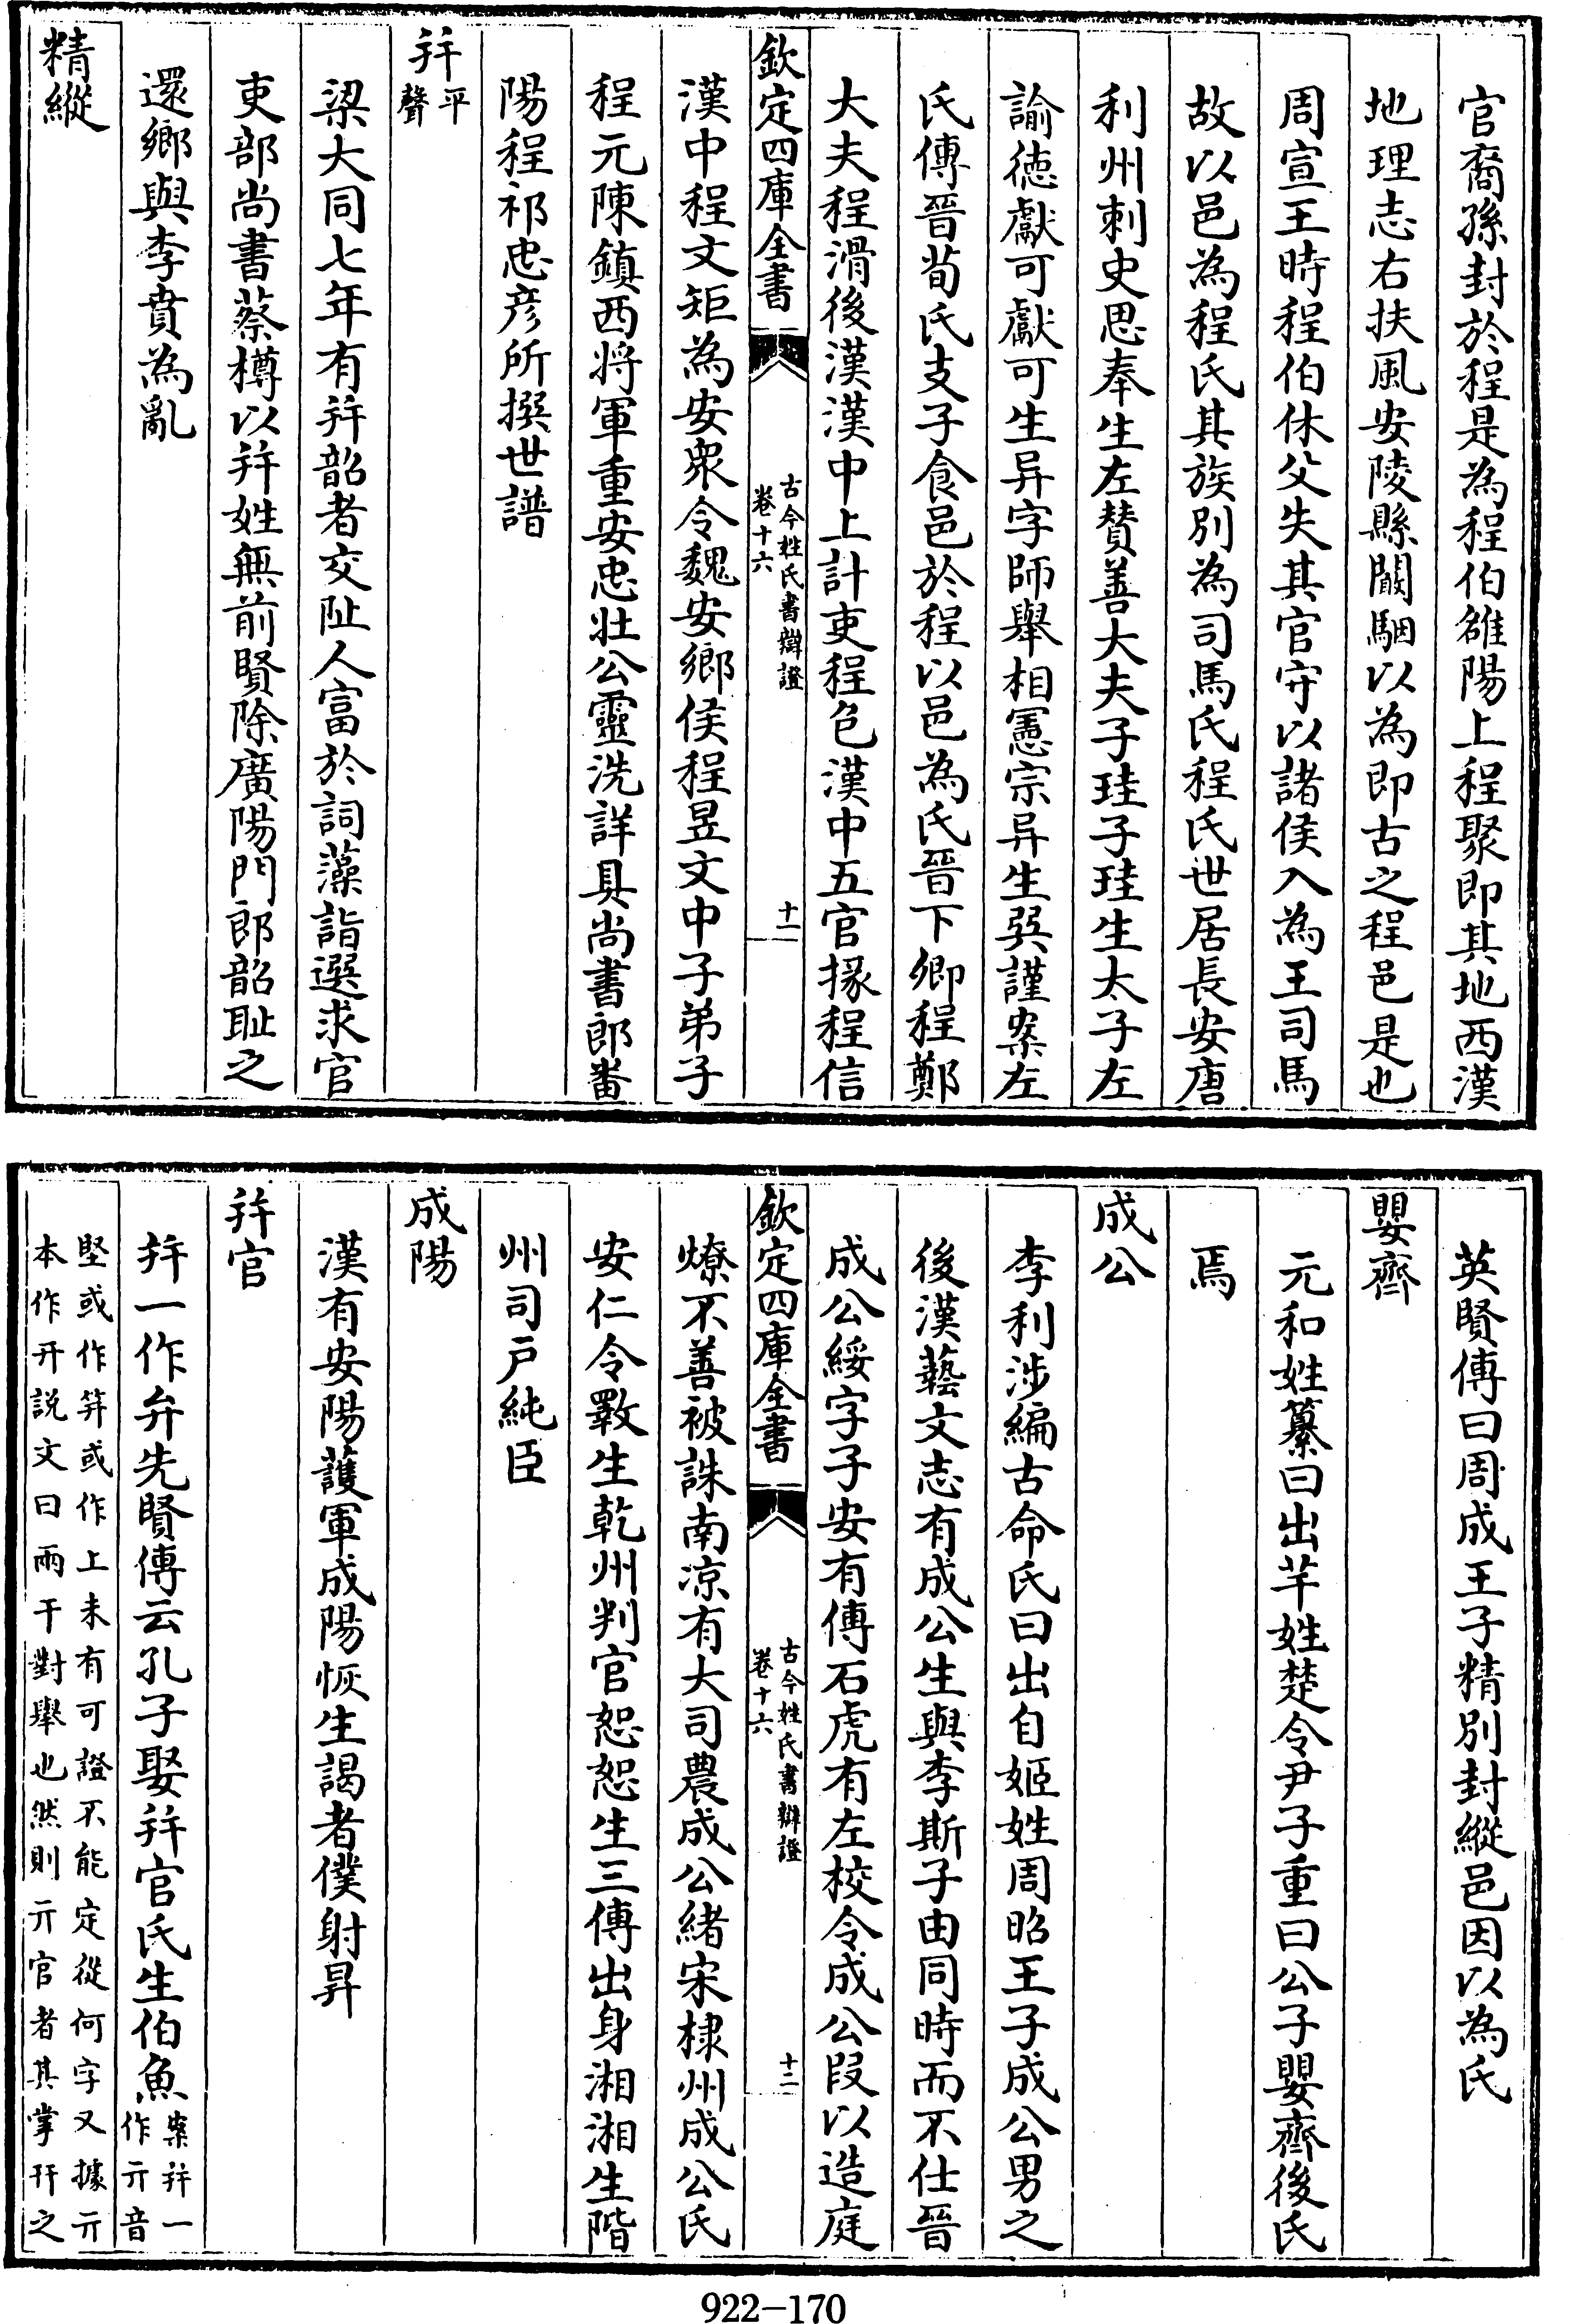 官裔孫封於程是為程伯雒陽上程聚即其地西漢
地理志右扶風安陵縣闞駰以為即古之程邑是也
周宣王時程伯休父失其官守以諸侯入為王司馬
故以邑為程氏其族別為司馬氏程氏世居長安唐
利州刺史思奉生左賛善大夫子珪子珪生太子左
諭徳獻可獻可生异字師舉相憲宗异生㢲謹案左
氏傳晉荀氏支子食邑於程以邑為氏晉下卿程鄭
大夫程滑後漢漢中上計吏程包漢中五官掾程信
欽定四庫全書
古今姓氏書辯證
卷十六
十一
漢中程文矩為安衆令魏安鄉侯程昱文中子弟子
程元陳鎮西将軍重安忠壯公靈洗詳具尚書郎畨
陽程祁忠彦所撰世譜
幷平聲
梁大同七年有幷韶者交阯人富於詞藻詣選求官
吏部尚書蔡樽以幷姓無前賢除廣陽門郎韶耻之
還鄉與李賁為亂
精縱
英賢傳曰周成王子精別封縱邑因以為氏
嬰齊
元和姓纂曰出芊姓楚令尹子重曰公子嬰齊後氏
焉
成公
李利涉編古命氏曰出自姬姓周昭王子成公男之
後漢藝文志有成公生與李斯子由同時而不仕晉
成公綏字子安有傳石虎有左校令成公段以造庭
欽定四庫全書
古今姓氏書辯證
卷十六
十二
燎不善被誅南凉有大司農成公緒宋棣州成公氏
安仁令斁生乾州判官恕恕生三傳出身湘湘生階
州司戸純臣
成陽
漢有安陽䕶軍成陽恢生謁者僕射昇
幷官
幷一作弁先賢傳云孔子娶幷官氏生伯魚案幷一
作亓音
堅或作笄或作上未有可證不能定從何字又據亓
本作幵説文曰兩干對舉也然則亓官者其掌幵之